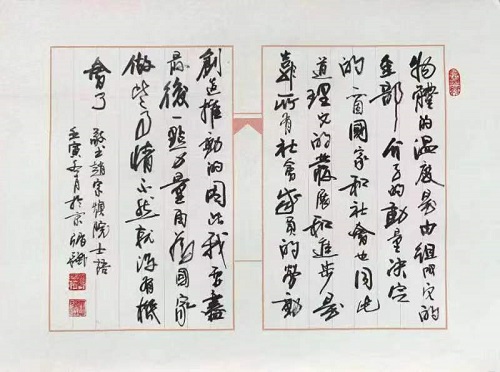 物體的温度是由組成它的
全部分子的動量決定
的一個國家和社會也同此
道理它的發展和進步是
靠所有社會成員的勞動
創造推動的因此我要盡
最後一點力量為國家
做些事情不然就沒有機
會了 敬书趙宗燠院士語
壬寅冬月於京